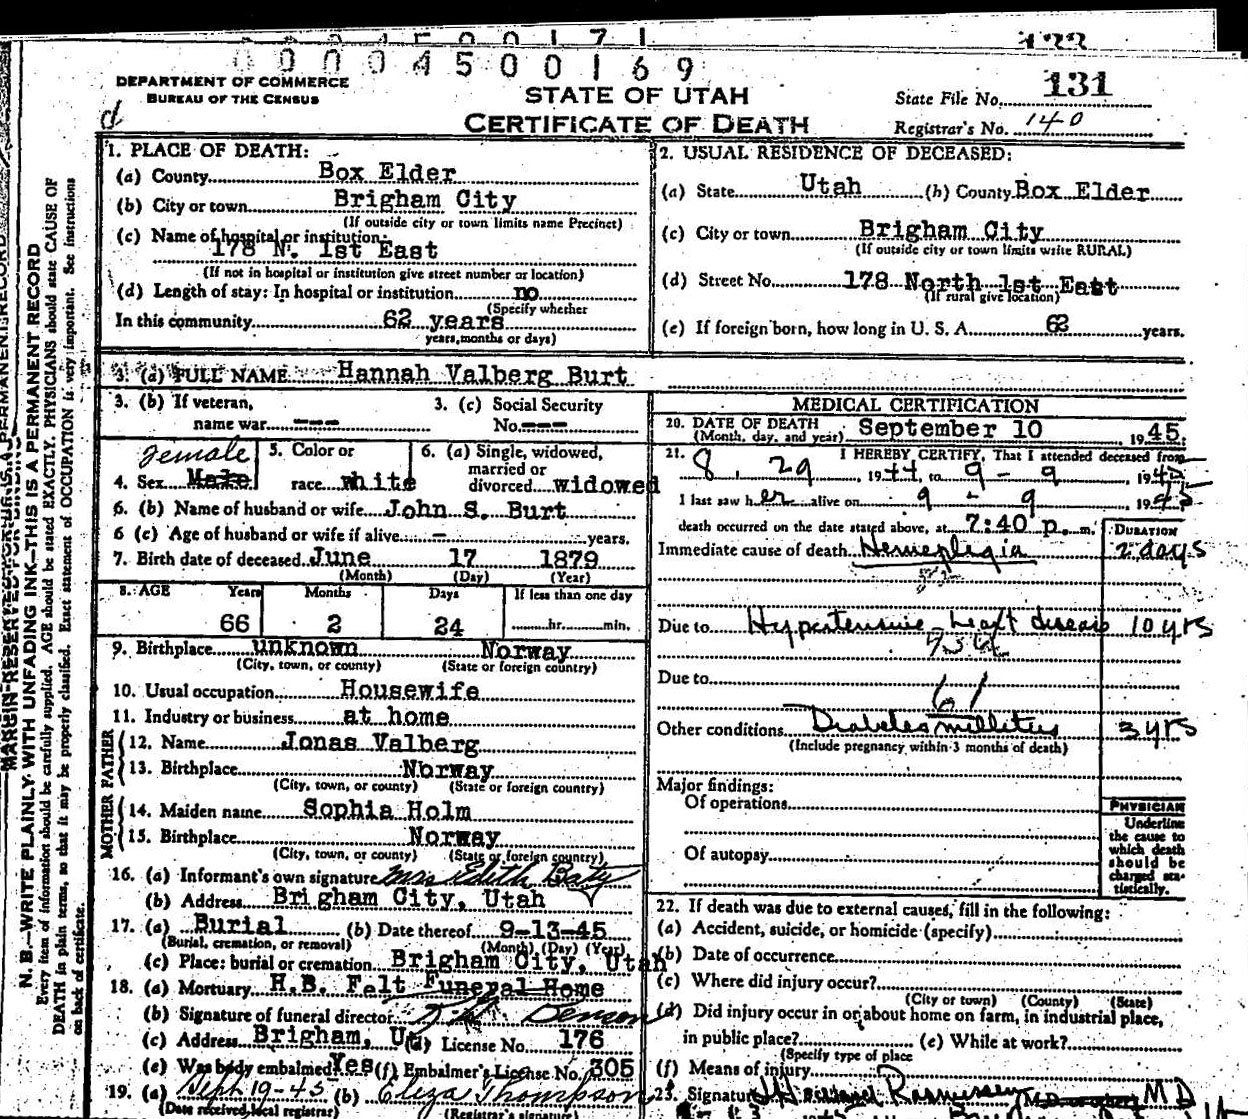 0004500169
131
DEPARTMENT OF COMMERCE
BUREAU OF THE CENSUS
STATE OF UTAH
CERTIFICATE OF DEATH
State File No. 131
Registrar's No. 140
1. PLACE OF DEATH:
(a) County Box Elder
(b) City or town Brigham City
(If outside city or town limits name Precinct)
(c) Name of hospital or institution:
178 N. 1st East
(If not in hospital or institution give street number or location)
(d) Length of stay: In hospital or institution no
(Specify whether
In this community 62 years
years, months or days)
2. USUAL RESIDENCE OF DECEASED:
(a) State Utah (b) County Box Elder
(c) City or town Brigham City
(If outside city or town limits write RURAL)
(d) Street No. 178 North 1st East
(If rural give location)
(e) If foreign born, how long in U. S. A. 62 years.
3. (a) FULL NAME Hannah Valberg Burt
3. (b) If veteran,
name war ---
3. (c) Social Security
No. ---
female
4. Sex Male
5. Color or
race white
6. (a) Single, widowed,
married or
divorced widowed
6. (b) Name of husband or wife John S. Burt
6 (c) Age of husband or wife if alive - years.
7. Birth date of deceased June 17 1879
(Month) (Day) (Year)
8. AGE Years Months Days If less than one day
66 2 24 hr. min.
9. Birthplace unknown Norway
(City, town, or county) (State or foreign country)
10. Usual occupation Housewife
11. Industry or business at home
FATHER
12. Name Jonas Valberg
13. Birthplace Norway
(City, town, or county) (State or foreign country)
MOTHER
14. Maiden name Sophia Holm
15. Birthplace Norway
(City, town, or county) (State or foreign country)
16. (a) Informant's own signature Mrs Edith Baty
(b) Address Brigham City, Utah
17. (a) Burial (b) Date thereof 9-13-45
(Burial, cremation, or removal) (Month) (Day) (Year)
(c) Place: burial or cremation Brigham City, Utah
18. (a) Mortuary H.B. Felt Funeral Home
(b) Signature of funeral director
(c) Address Brigham, U (d) License No. 176
(e) Was body embalmed Yes (f) Embalmer's License No. 305
19. (a) Sept 19-45 (b) Eliza Thompson
(Date received local registrar) (Registrar's signature)
MEDICAL CERTIFICATION
20. DATE OF DEATH
(Month, day, and year) September 10, 1945
21. I HEREBY CERTIFY, That I attended deceased from
8, 29, 1944, to 9 - 9, 1945
I last saw her alive on 9 - 9, 1945
death occurred on the date stated above, at 7:40 p. m.
DURATION
Immediate cause of death Hemeplegia 2 days
Due to Hypertensive heart disease 10 yrs
Due to
61
Other conditions Diabetes millitus 3 yrs
(Include pregnancy within 3 months of death)
Major findings:
Of operations
Of autopsy
PHYSICIAN
Underline
the cause to
which death
should be
charged sta-
tistically.
22. If death was due to external causes, fill in the following:
(a) Accident, suicide, or homicide (specify)
(b) Date of occurrence
(c) Where did injury occur?
(City or town) (County) (State)
(d) Did injury occur in or about home on farm, in industrial place,
in public place? (e) While at work?
(Specify type of place
(f) Means of injury
23. Signature Rasmussen M D
N. B.—WRITE PLAINLY WITH UNFADING INK—THIS IS A PERMANENT RECORD
Every item of information should be carefully supplied. AGE should be stated EXACTLY. PHYSICIANS should state CAUSE OF
DEATH in plain terms, so that it may be properly classified. Exact statement of OCCUPATION is very important. See instructions
on back of certificate.